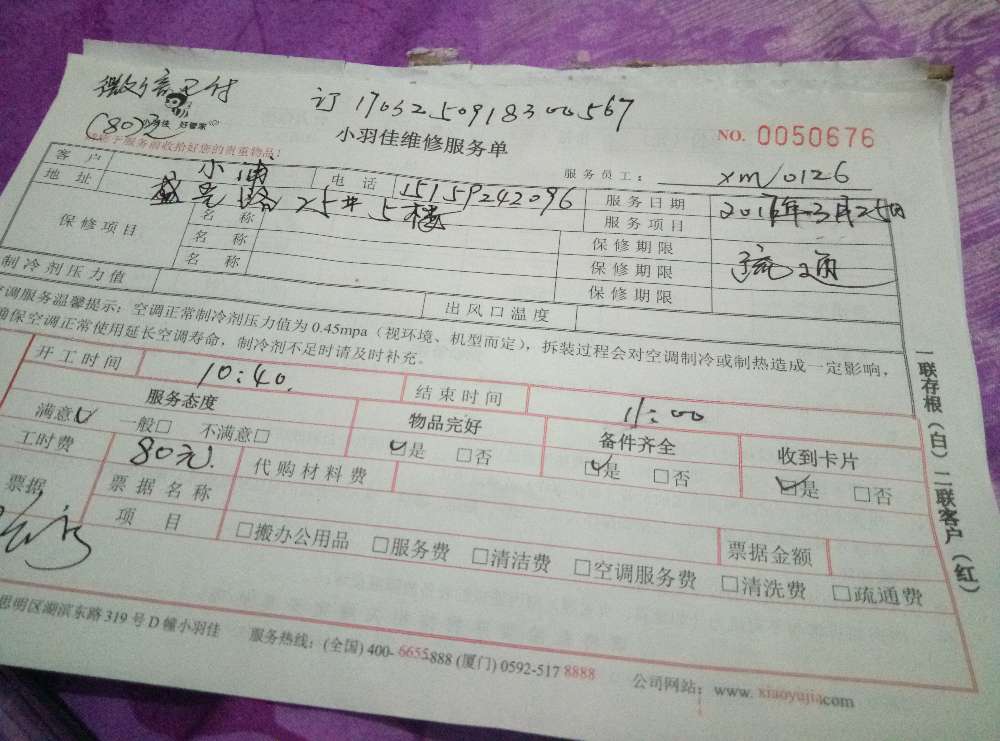 微信已付
(80)元
订 170325091830 0567
小羽佳 好管家
小羽佳维修服务单
NO. 0050676
请于服务前收拾好您的贵重物品!
服务员工: xm/0126
客户 小浦 电话 15159242096 服务日期 2017年3月25日
地址 25# 5楼 服务项目 疏通
保修项目 名称 保修期限
名称 保修期限
名称 保修期限
制冷剂压力值 出风口温度
空调服务温馨提示: 空调正常制冷剂压力值为 0.45mpa (视环境、机型而定), 拆装过程会对空调制冷或制热造成一定影响,
确保空调正常使用延长空调寿命, 制冷剂不足时请及时补充。
开工时间 10:40. 结束时间 11:00
服务态度 物品完好 备件齐全 收到卡片
满意☑ 一般□ 不满意□ ☑是 □否 ☑是 □否 ☑是 □否
工时费 80元. 代购材料费
票据 票据名称 票据金额
项目 □搬办公用品 □服务费 □清洁费 □空调服务费 □清洗费 □疏通费
思明区湖滨东路 319 号 D 幢小羽佳 服务热线: (全国) 400- 6655-888 (厦门) 0592-517 8888 公司网站: www. xiaoyujia.com
一联存根(白) 二联客户(红)